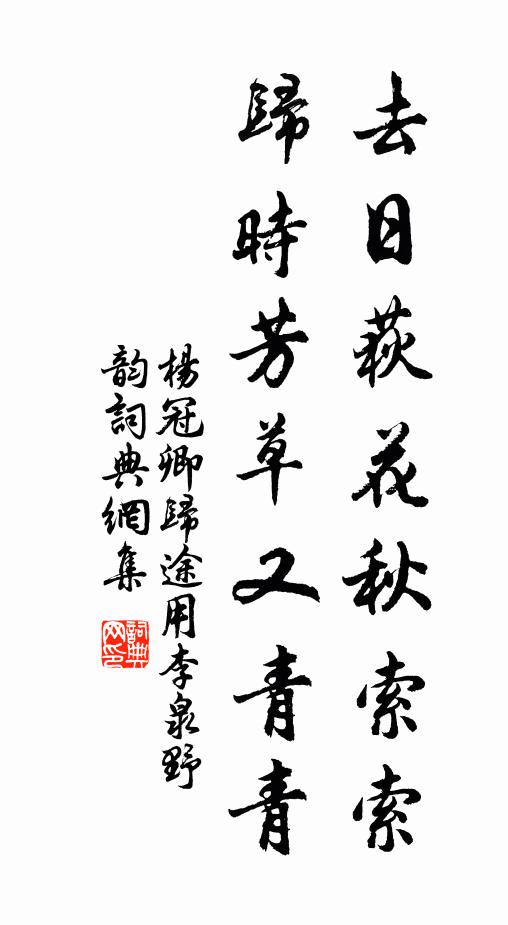 去日荻花秋索索
歸時芳草又青青
楊冠卿歸途用李泉野
韵詞典網集
詞典網印